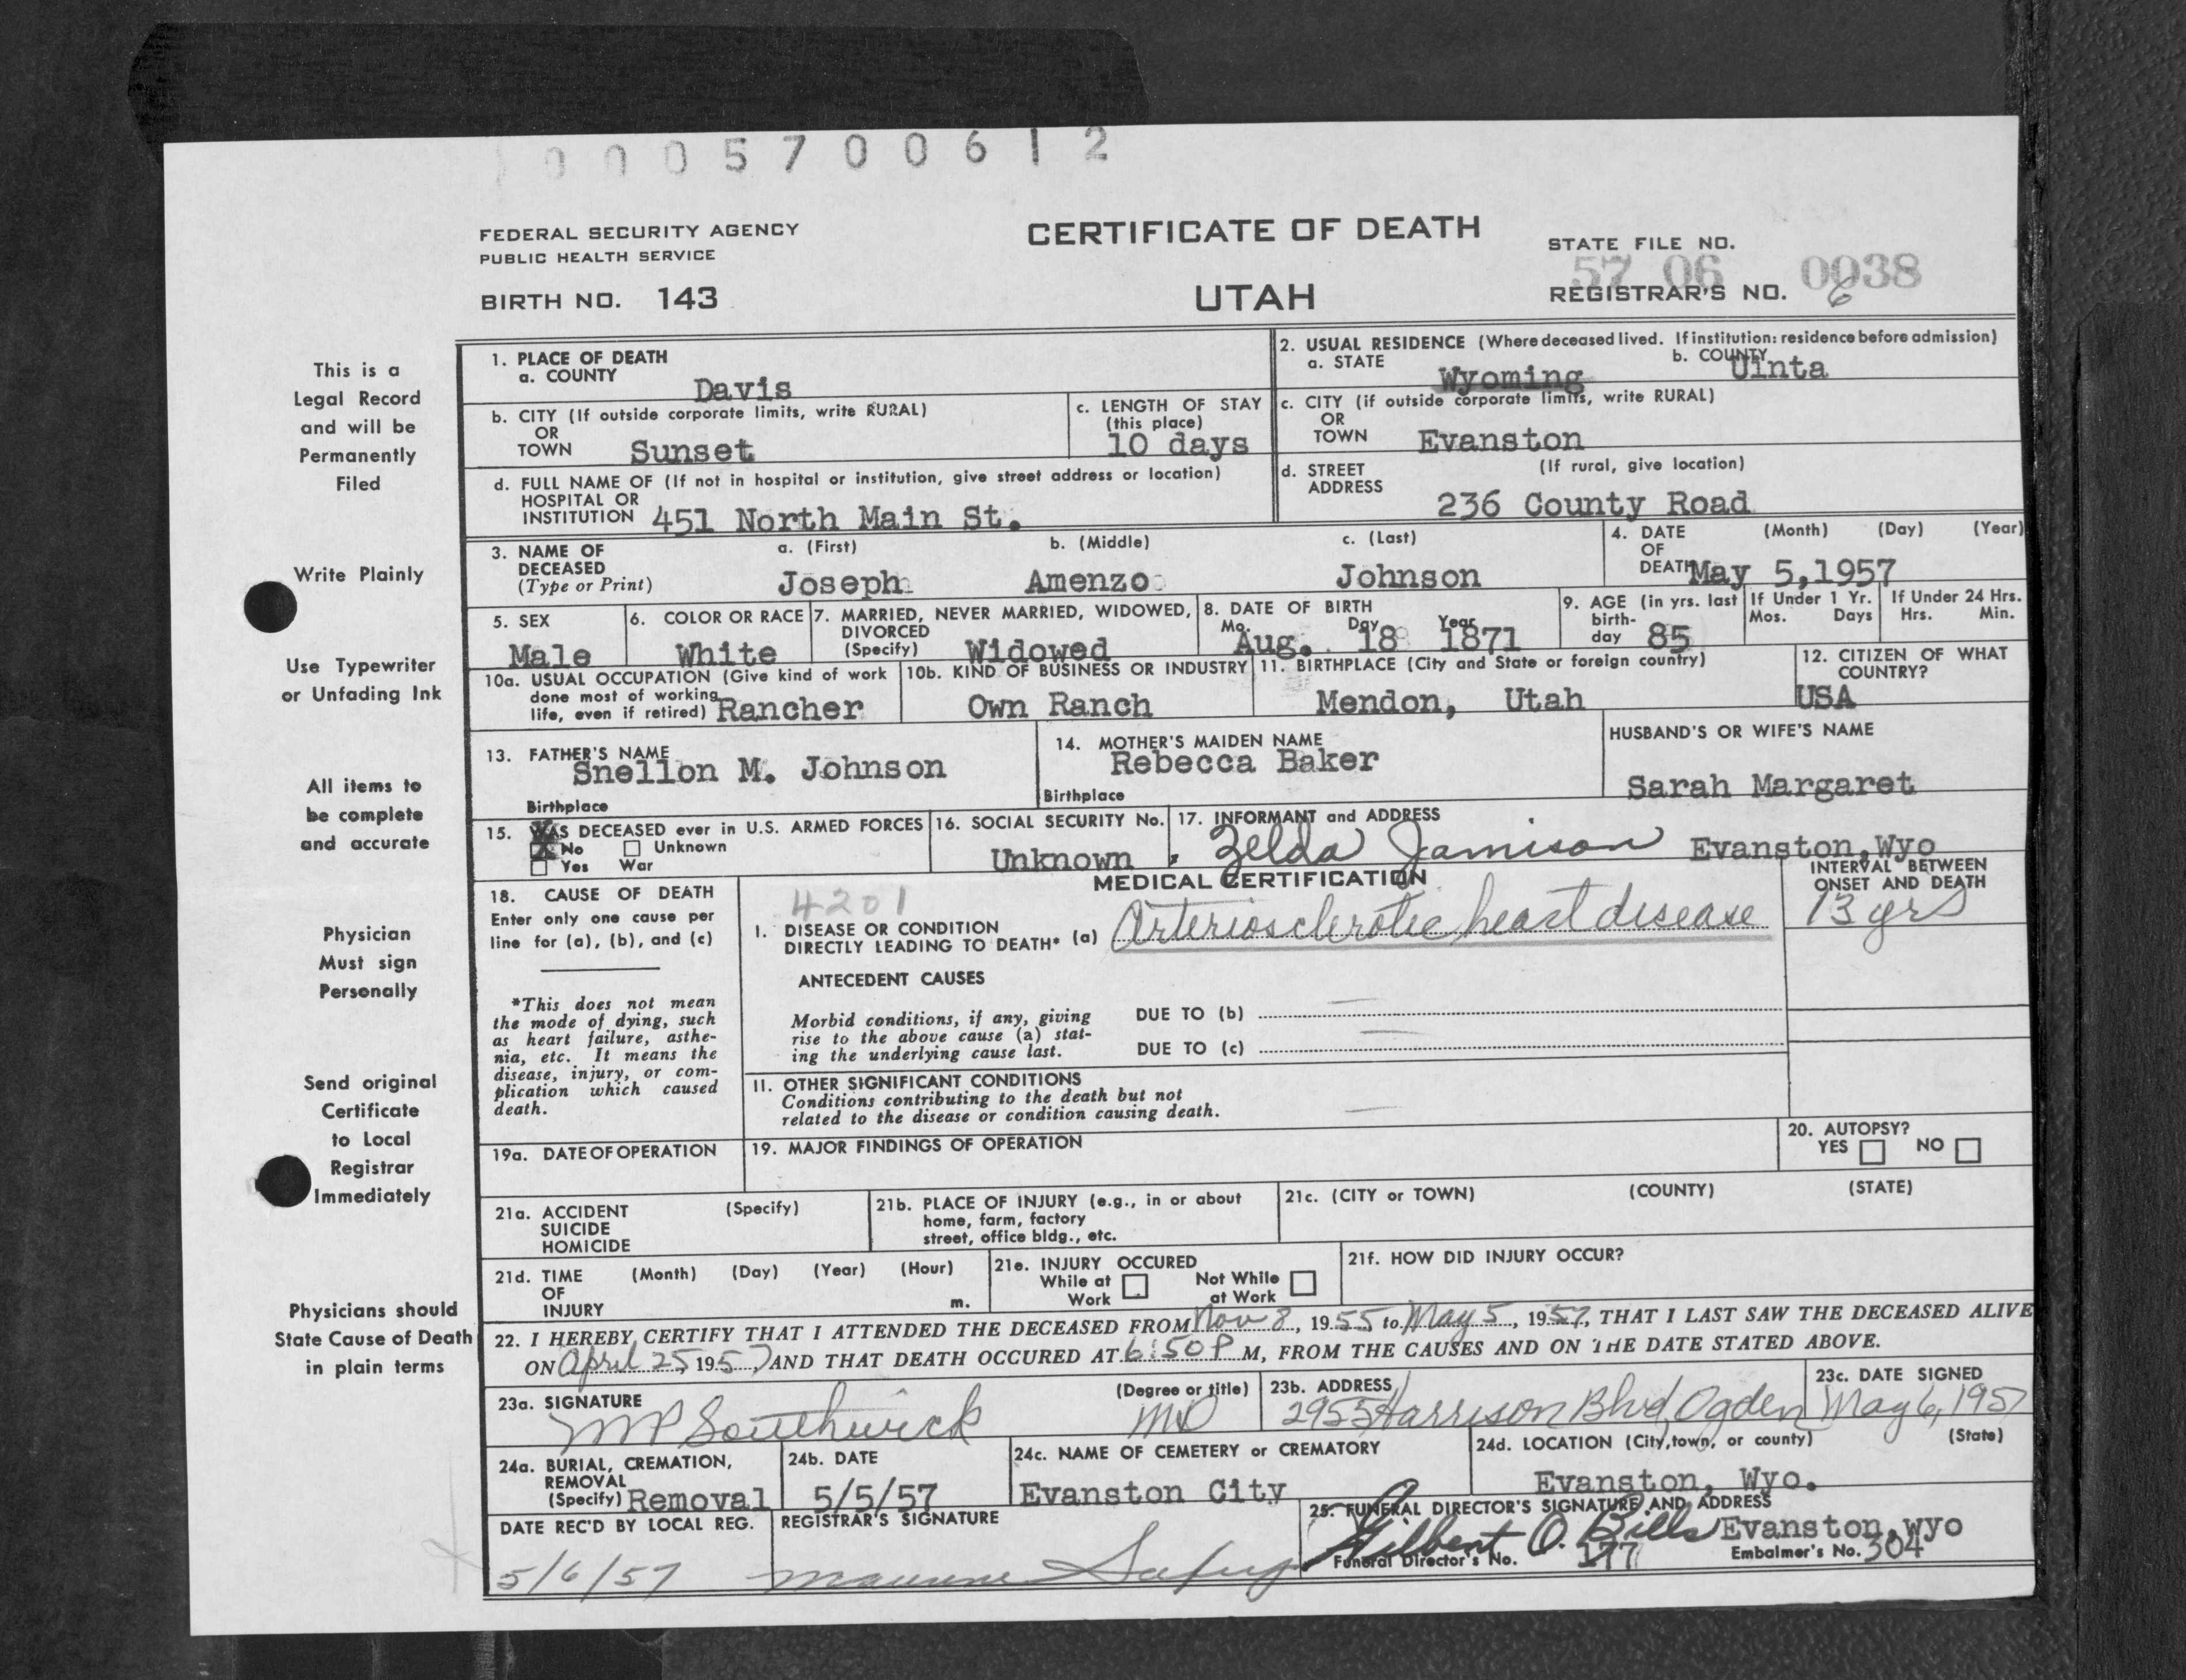 0005700612
FEDERAL SECURITY AGENCY
PUBLIC HEALTH SERVICE
BIRTH NO. 143
CERTIFICATE OF DEATH
UTAH
STATE FILE NO.
57 06 0038
REGISTRAR'S NO. 6
This is a
Legal Record
and will be
Permanently
Filed
Write Plainly
Use Typewriter
or Unfading Ink
All items to
be complete
and accurate
Physician
Must sign
Personally
Send original
Certificate
to Local
Registrar
Immediately
Physicians should
State Cause of Death
in plain terms
1. PLACE OF DEATH
a. COUNTY
Davis
2. USUAL RESIDENCE (Where deceased lived. If institution: residence before admission)
a. STATE Wyoming b. COUNTY Uinta
b. CITY (If outside corporate limits, write RURAL)
OR
TOWN Sunset
c. LENGTH OF STAY
(this place)
10 days
c. CITY (if outside corporate limits, write RURAL)
OR
TOWN Evanston
d. FULL NAME OF (If not in hospital or institution, give street address or location)
HOSPITAL OR
INSTITUTION 451 North Main St.
d. STREET (If rural, give location)
ADDRESS
236 County Road
3. NAME OF
DECEASED
(Type or Print)
a. (First) b. (Middle) c. (Last)
Joseph Amenzo Johnson
4. DATE (Month) (Day) (Year)
OF
DEATH May 5,1957
5. SEX
Male
6. COLOR OR RACE
White
7. MARRIED, NEVER MARRIED, WIDOWED,
DIVORCED
(Specify) Widowed
8. DATE OF BIRTH
Mo. Day Year
Aug. 18 1871
9. AGE (in yrs. last
birth-
day 85
If Under 1 Yr.
Mos. Days
If Under 24 Hrs.
Hrs. Min.
10a. USUAL OCCUPATION (Give kind of work
done most of working
life, even if retired) Rancher
10b. KIND OF BUSINESS OR INDUSTRY
Own Ranch
11. BIRTHPLACE (City and State or foreign country)
Mendon, Utah
12. CITIZEN OF WHAT
COUNTRY?
USA
13. FATHER'S NAME
Snellon M. Johnson
Birthplace
14. MOTHER'S MAIDEN NAME
Rebecca Baker
Birthplace
HUSBAND'S OR WIFE'S NAME
Sarah Margaret
15. WAS DECEASED ever in U.S. ARMED FORCES
X No Unknown
Yes War
16. SOCIAL SECURITY No.
Unknown
17. INFORMANT and ADDRESS
Zelda Jamison Evanston,Wyo
MEDICAL CERTIFICATION
INTERVAL BETWEEN
ONSET AND DEATH
18. CAUSE OF DEATH
Enter only one cause per
line for (a), (b), and (c)
*This does not mean
the mode of dying, such
as heart failure, asthe-
nia, etc. It means the
disease, injury, or com-
plication which caused
death.
4201
I. DISEASE OR CONDITION
DIRECTLY LEADING TO DEATH* (a) Arteriosclerotic heart disease
13 yrs
ANTECEDENT CAUSES
Morbid conditions, if any, giving
rise to the above cause (a) stat-
ing the underlying cause last.
DUE TO (b)
DUE TO (c)
II. OTHER SIGNIFICANT CONDITIONS
Conditions contributing to the death but not
related to the disease or condition causing death.
19a. DATE OF OPERATION
19. MAJOR FINDINGS OF OPERATION
20. AUTOPSY?
YES NO
21a. ACCIDENT (Specify)
SUICIDE
HOMICIDE
21b. PLACE OF INJURY (e.g., in or about
home, farm, factory
street, office bldg., etc.
21c. (CITY or TOWN) (COUNTY) (STATE)
21d. TIME (Month) (Day) (Year) (Hour)
OF
INJURY m.
21e. INJURY OCCURED
While at Work Not While at Work
21f. HOW DID INJURY OCCUR?
22. I HEREBY CERTIFY THAT I ATTENDED THE DECEASED FROM Nov 8, 1955 to May 5, 1957, THAT I LAST SAW THE DECEASED ALIVE
ON April 25, 1957 AND THAT DEATH OCCURED AT 6:50 P M, FROM THE CAUSES AND ON THE DATE STATED ABOVE.
23a. SIGNATURE (Degree or title)
MP Southwick MD
23b. ADDRESS
2955 Harrison Blvd, Ogden
23c. DATE SIGNED
May 6, 1957
24a. BURIAL, CREMATION,
REMOVAL
(Specify) Removal
24b. DATE
5/5/57
24c. NAME OF CEMETERY or CREMATORY
Evanston City
24d. LOCATION (City, town, or county) (State)
Evanston, Wyo.
DATE REC'D BY LOCAL REG.
5/6/57
REGISTRAR'S SIGNATURE
25. FUNERAL DIRECTOR'S SIGNATURE AND ADDRESS
Gilbert O. Bills Evanston,wyo
Funeral Director's No. 177 Embalmer's No. 304